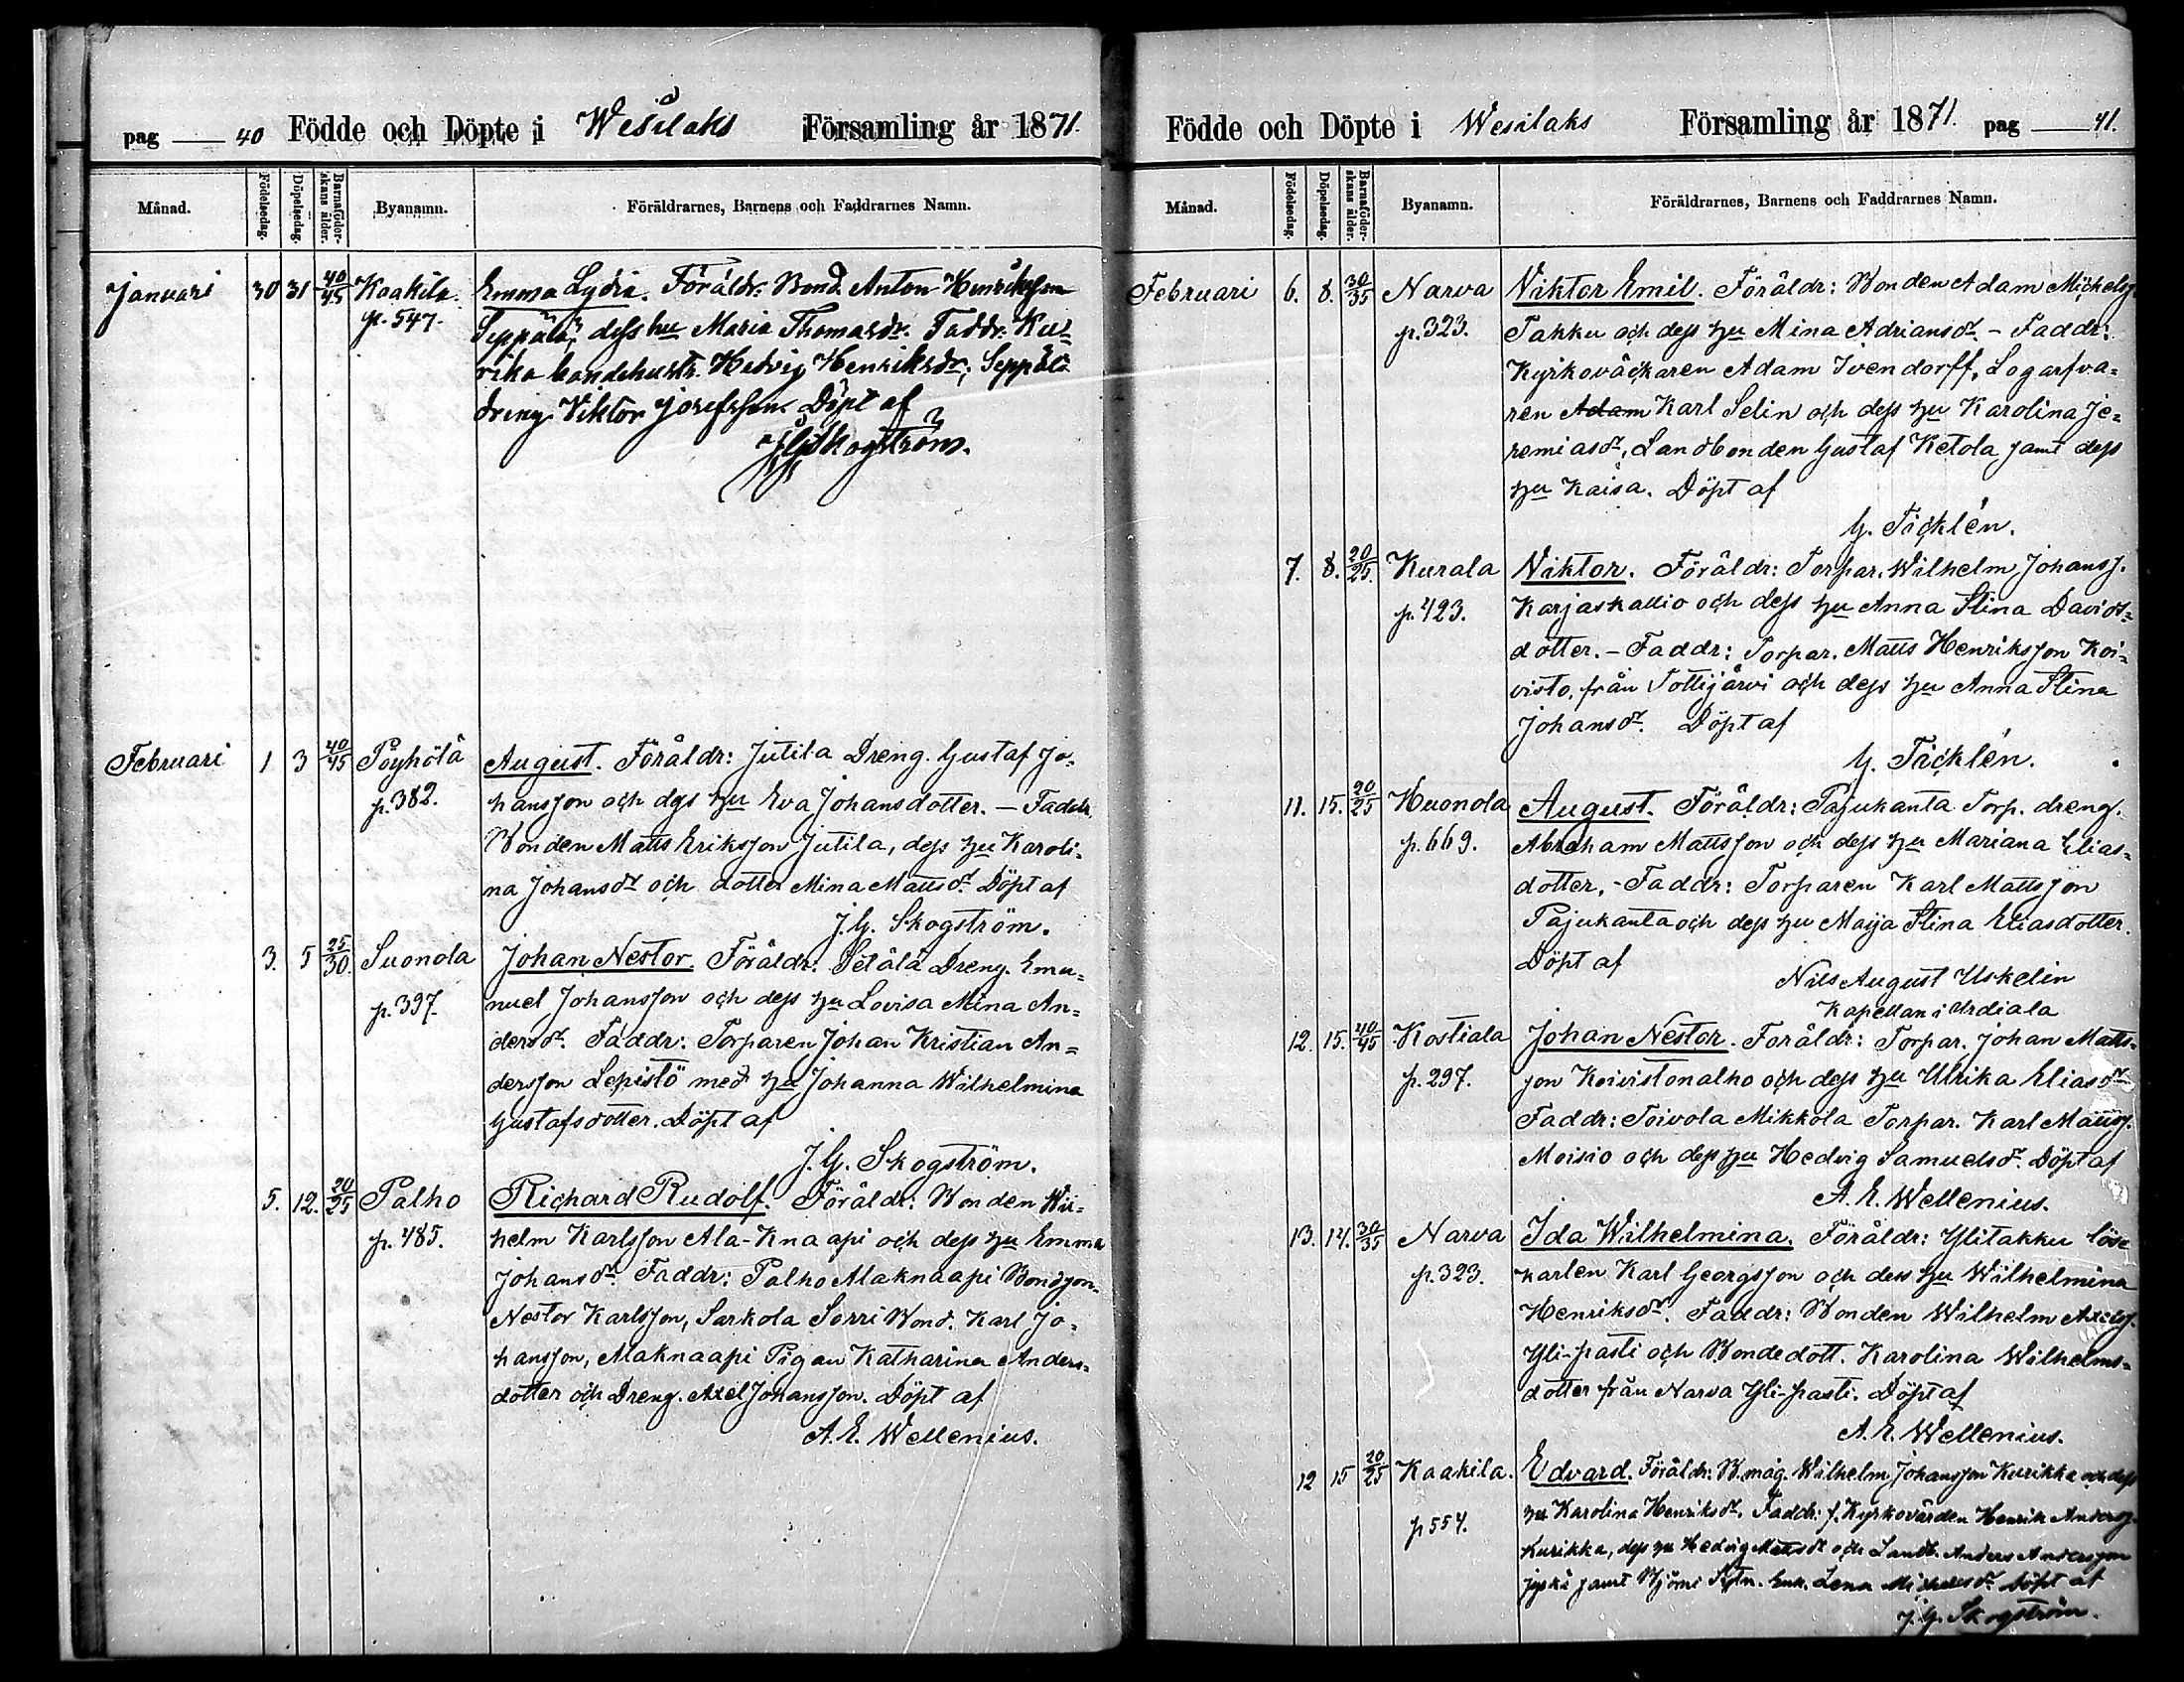 pag 40 Födde och Döpte i Wesilaks Församling år 1871.
Månad. Födelsedag. Döpelsedag. Barnaföderskans ålder. Byanamn. Föräldrarnes, Barnens och Faddrarnes Namn.
Januari 30 31 40/45 Kaakila. Emma Lydia. Föräldr. Bond. Anton Henriksson
p. 547. Seppälä, dess hu Maria Thomasdr. Faddr. Ku=
rika bondehustr. Hedvig Henriksdr, Seppälä
dreng Viktor Josefsson Döpt af
JGSkogström.
Februari 1 3 40/45 Pöyhölä August. Föräldr: Jutila Dreng. Gustaf Jo=
p. 382. hansson och dess hu Eva Johansdotter. – Faddr.
Bonden Matts Eriksson Jutila, dess hu Karoli=
na Johansdr och dotter Mina Mattsdr. Döpt af
J. G. Skogström.
3. 5 25/30. Suonola Johan Nestor. Föräldr: Setälä Dreng. Ema=
p. 397. nuel Johansson och dess hu Lovisa Mina An=
dersdr. Faddr: Torparen Johan Kristian An=
dersson Lepistö med hu Johanna Wilhelmina
Gustafsdotter. Döpt af
J. G. Skogström.
5. 12. 20/25 Palho Richard Rudolf. Föräldr: Bonden Wil=
p. 485. helm Karlsson Ala-Knaapi och dess hu Emma
Johansdr. Faddr: Palho Alaknaapi Bondson
Nestor Karlsson, Sarkola Sorri Bond. Karl Jo=
hansson, Alaknaapi Pigan Katharina Anders=
dotter och Dreng. Axel Johansson. Döpt af
A. E. Wellenius.
Födde och Döpte i Wesilaks Församling år 1871. pag 41.
Månad. Födelsedag. Döpelsedag. Barnaföderskans ålder. Byanamn. Föräldrarnes, Barnens och Faddrarnes Namn.
Februari 6. 8. 30/35 Narva Viktor Emil. Föräldr: Bonden Adam Michelss.
p. 323. Takku och dess hu Mina Adriansdr. – Faddr:
Kyrkoväckaren Adam Ivendorff, Logarfva=
ren Adam Karl Selin och dess hu Karolina Je=
remiasdr, Landbonden Gustaf Ketola samt dess
hu Kaisa. Döpt af
G. Täcklén.
7. 8. 20/25. Kurala Viktor. Föräldr: Torpar. Wilhelm Johanss.
p. 423. Karjaskallio och dess hu Anna Stina Davids=
dotter. – Faddr: Torpar. Matts Henriksson Koi=
visto, från Tottijärvi och dess hu Anna Stina
Johansdr. Döpt af
G. Täcklén.
11. 15. 20/25 Huonola August. Föräldr: Pajukanta Torp. dreng.
p. 669. Abraham Mattsson och dess hu Mariana Elias=
dotter, – Faddr: Torparen Karl Mattsson
Pajukanta och dess hu Maija Stina Eliasdotter.
Döpt af
Nils August Uskelin
Kapellan i Urdiala
12. 15. 40/45 Kostiala Johan Nestor. Föräldr: Torpar. Johan Matts=
p. 297. son Koivistonalho och dess hu Ulrika Eliasdr
Faddr: Toivola Mikkola Torpar. Karl Matts.
Moisio och dess hu Hedvig Samuelsdr. Döpt af
A. E. Wellenius.
13. 14. 30/35 Narva Ida Wilhelmina. Föräldr: Ylitakku löse
p. 323. karlen Karl Georgsson och dess hu Wilhelmina
Henriksdr. Faddr: Bonden Wilhelm Axelss.
Yli-pasti och Bondedott. Karolina Wilhelms=
dotter från Narva Yli-pasti. Döpt af
A. E. Wellenius.
12 15 20/25 Kaakila. Edvard. Föräldr: B.måg. Wilhelm Johansson Kurikka och dess
p 554. hu Karolina Henriksdr. Faddr: f. Kyrkovärden Henrik Anderss.
Kurikka, dess hu Hedvig Mattsdr och Landb. Anders Andersson
samt Enk. Lena Michelsdr. döpt af
J. G. Skogström.